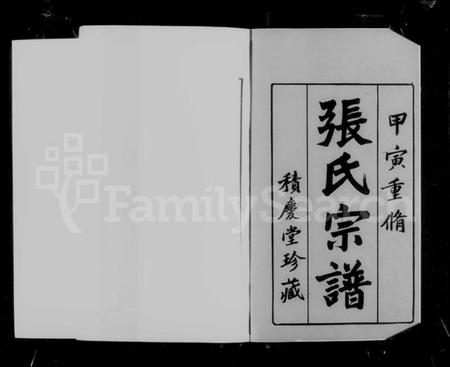 甲寅重脩
張氏宗譜
積慶堂珍藏
FamilySearch